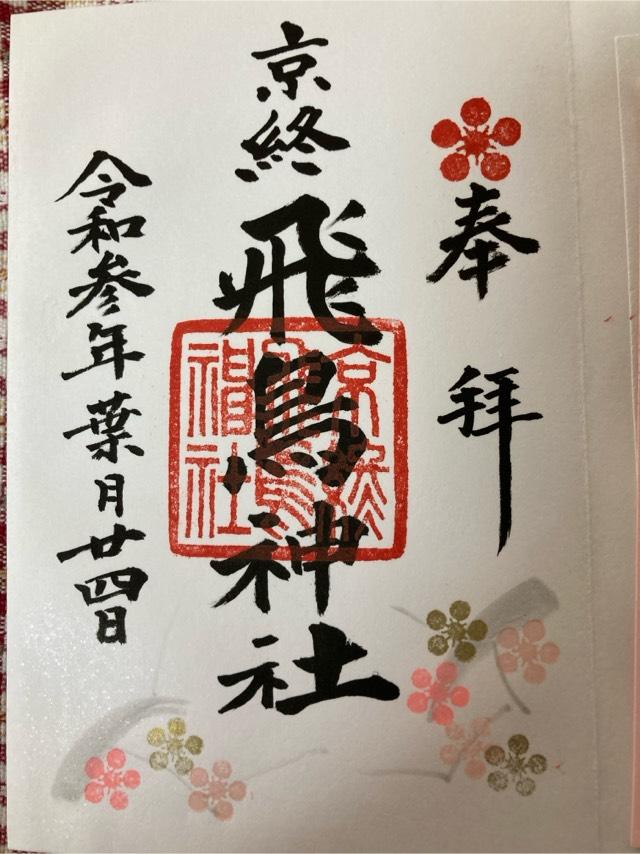 奉拝
京終
飛鳥神社
京終
飛鳥
神社
令和参年葉月廿四日